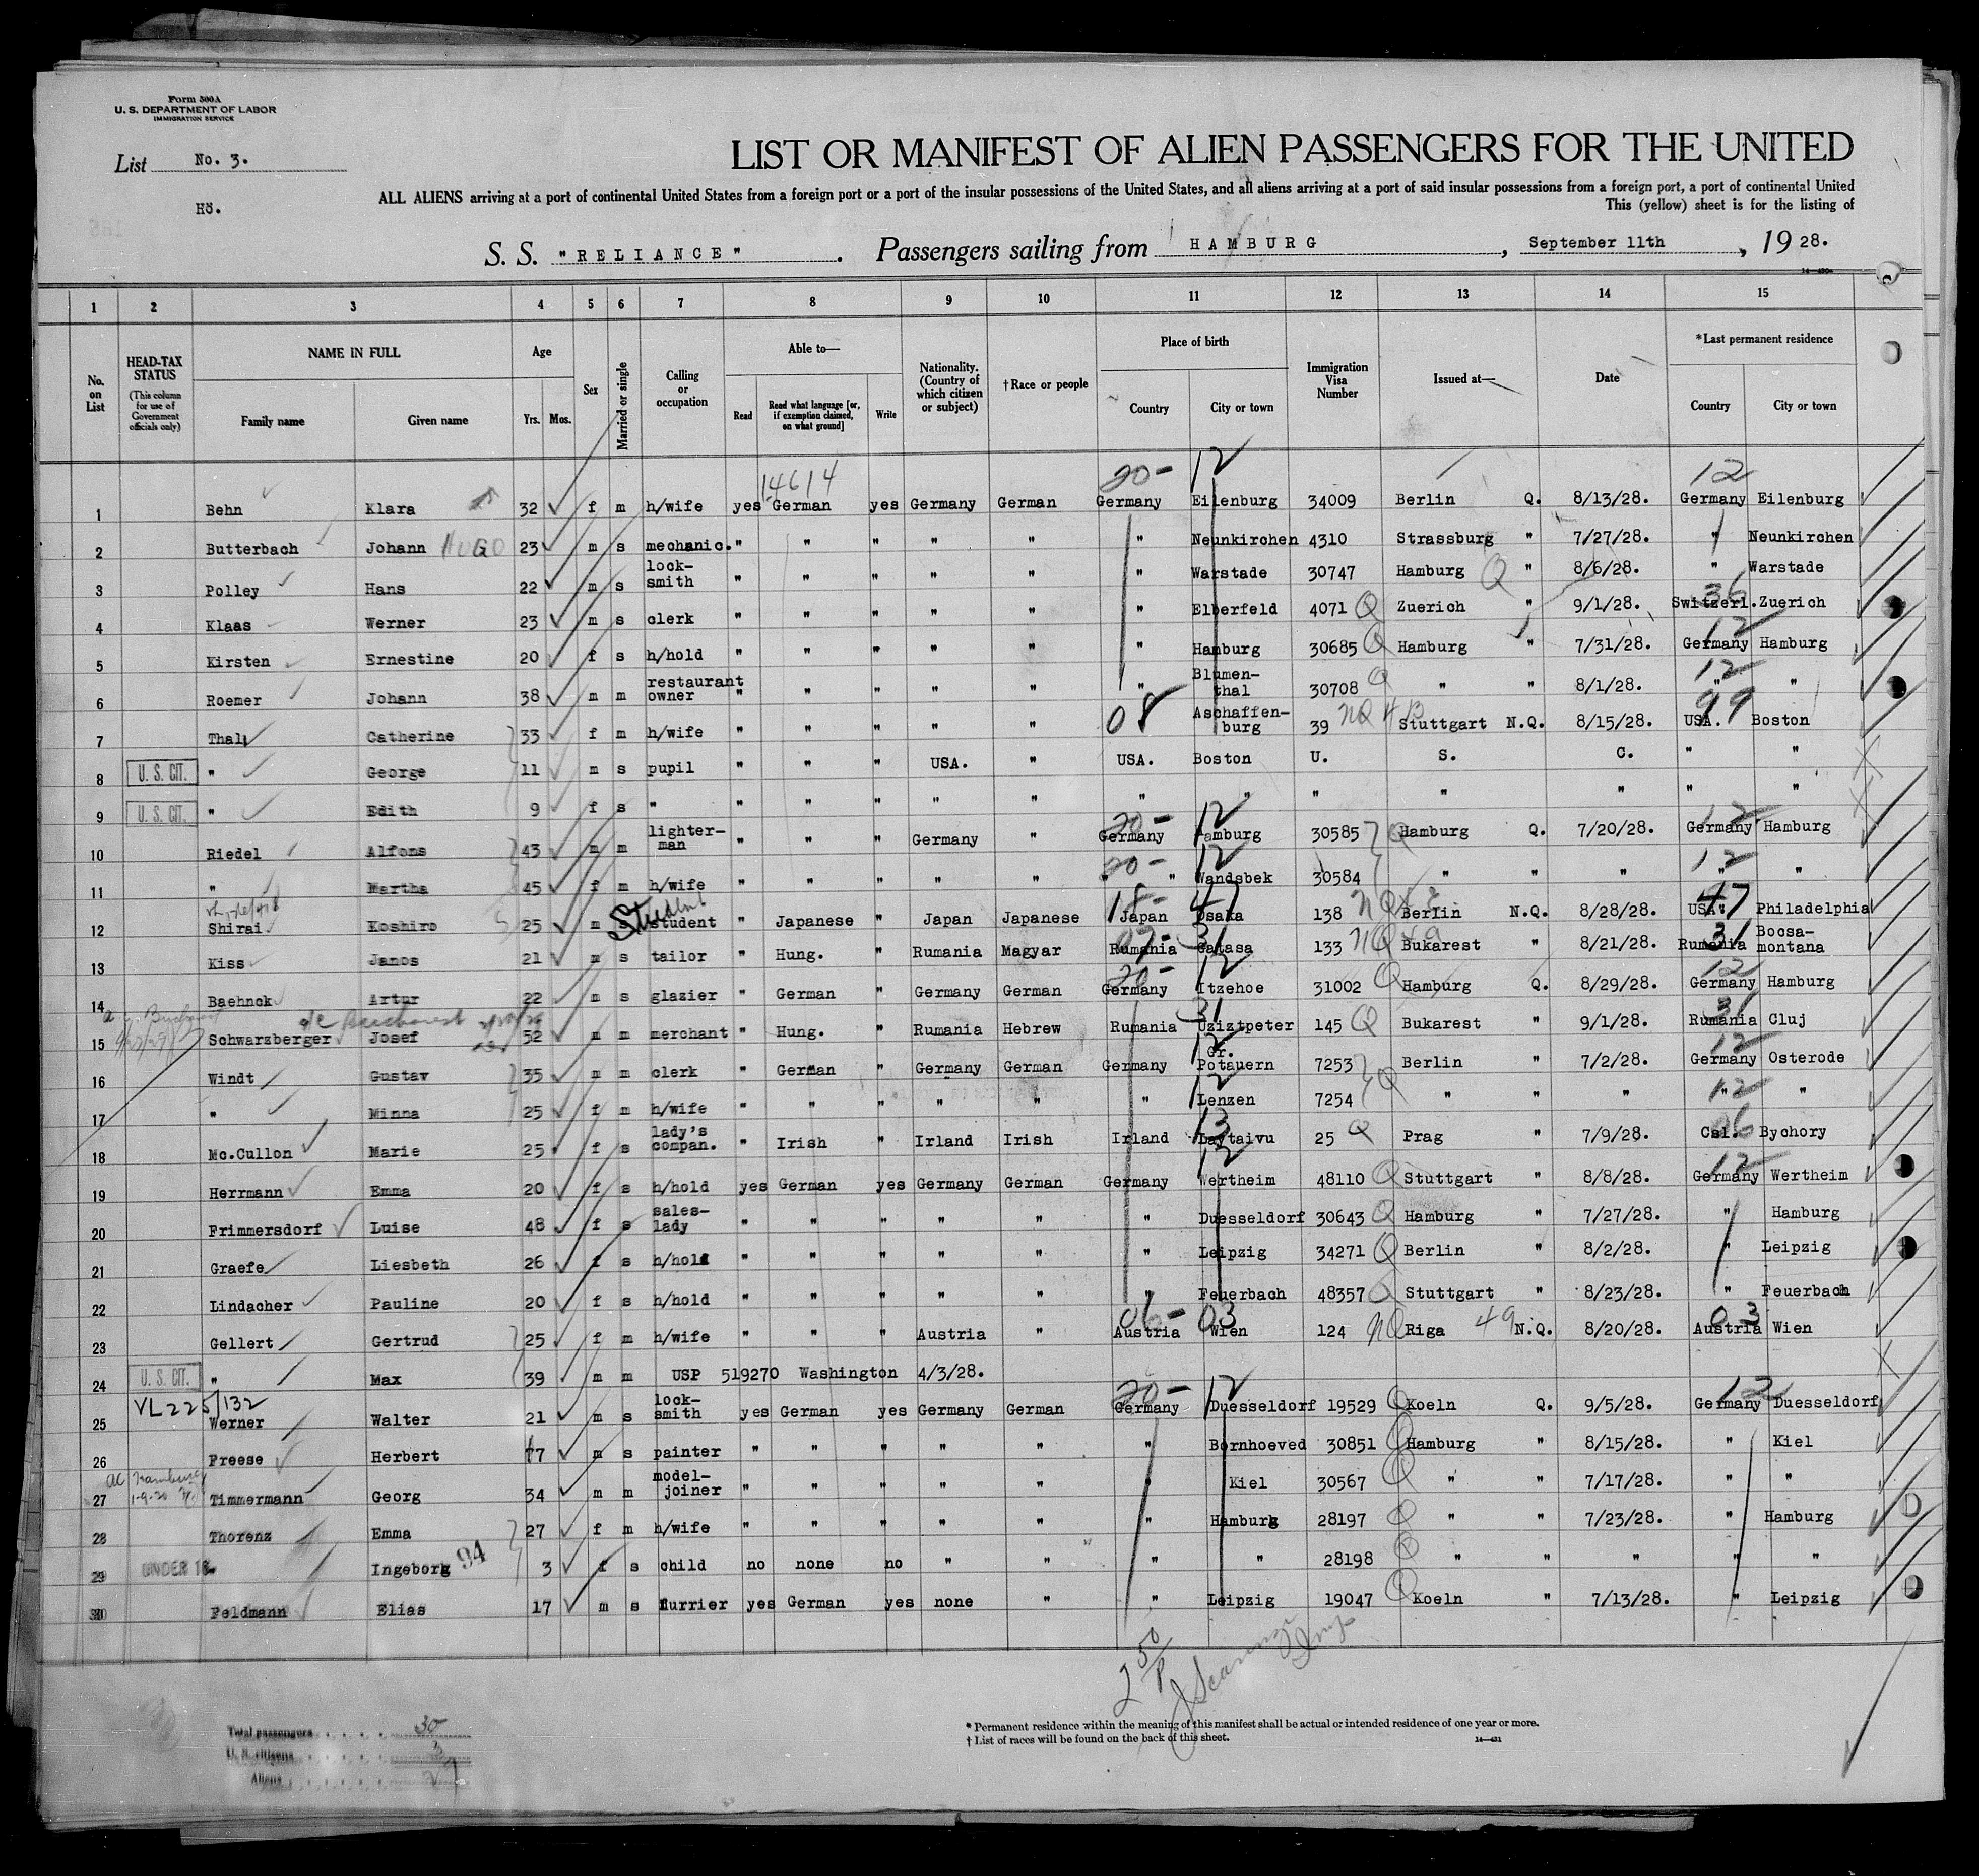 Form 500A
U. S. DEPARTMENT OF LABOR
IMMIGRATION SERVICE
List No. 3.
Hö.
LIST OR MANIFEST OF ALIEN PASSENGERS FOR THE UNITED
ALL ALIENS arriving at a port of continental United States from a foreign port or a port of the insular possessions of the United States, and all aliens arriving at a port of said insular possessions from a foreign port, a port of continental United
This (yellow) sheet is for the listing of
S. S. "RELIANCE" . Passengers sailing from HAMBURG , September 11th , 1928.
1 2 3 4 5 6 7 8 9 10 11 12 13 14 15
No. on List
HEAD-TAX STATUS (This column for use of Government officials only)
NAME IN FULL Family name Given name
Age Yrs. Mos.
Sex
Married or single
Calling or occupation
Able to— Read Read what language [or, if exemption claimed, on what ground] Write
Nationality. (Country of which citizen or subject)
†Race or people
Place of birth Country City or town
Immigration Visa Number
Issued at—
Date
*Last permanent residence Country City or town
14614 20- 12 12
1 Behn Klara 32 f m h/wife yes German yes Germany German Germany Eilenburg 34009 Berlin Q. 8/13/28. Germany Eilenburg
2 Butterbach Johann HUGO 23 m s mechanic. " " " " " " Neunkirchen 4310 Strassburg " 7/27/28. " Neunkirchen
3 Polley Hans 22 m s lock-smith " " " " " " Warstade 30747 Hamburg Q " 8/6/28. " Warstade
4 Klaas Werner 23 m s clerk " " " " " " Elberfeld 4071 Q Zuerich " 9/1/28. Switzerl. 36 Zuerich
5 Kirsten Ernestine 20 f s h/hold " " " " " " Hamburg 30685 Q Hamburg " 7/31/28. Germany 12 Hamburg
6 Roemer Johann 38 m m restaurant owner " " " " " " Blumen-thal 30708 Q " " 8/1/28. " 12 "
7 Thal Catherine 33 f m h/wife " " " " " 08 Aschaffen-burg 39 NQ 4B Stuttgart N.Q. 8/15/28. USA. 99 Boston
8 U. S. CIT. " George 11 m s pupil " " " USA. " USA. Boston U. S. C. " "
9 U. S. CIT. " Edith 9 f s " " " " " " " " " " " " "
10 Riedel Alfons 43 m m lighter-man " " " Germany " 20- Germany 12 Hamburg 30585 Q Hamburg Q. 7/20/28. 12 Germany Hamburg
11 " Martha 45 f m h/wife " " " " " 20- " 12 Wandsbek 30584 " " " 12 " "
12 Shirai Koshiro 25 m s Student student " Japanese " Japan Japanese 18- Japan 47 Osaka 138 NQ Berlin N.Q. 8/28/28. USA. 47 Philadelphia
13 Kiss Janos 21 m s tailor " Hung. " Rumania Magyar Rumania 31 Satasa 133 NQ 49 Bukarest " 8/21/28. Rumania 31 Bocsa-montana
14 Baehnck Artur 22 m s glazier " German " Germany German 20- Germany 12 Itzehoe 31002 Q Hamburg Q. 8/29/28. 12 Germany Hamburg
15 Schwarzberger Josef 52 m m merchant " Hung. " Rumania Hebrew Rumania 31 Usiztpeter 145 Q Bukarest " 9/1/28. 31 Rumania Cluj
16 Windt Gustav 35 m m clerk " German " Germany German Germany 12 Gr. Potauern 7253 Q Berlin " 7/2/28. 12 Germany Osterode
17 " Minna 25 f m h/wife " " " " " " 12 Lenzen 7254 " " " 12 " "
18 Mc.Cullon Marie 25 f s lady's compan. " Irish " Irland Irish Irland 13 Laytaivu 25 Q Prag " 7/9/28. Csl. 06 Bychory
19 Herrmann Emma 20 f s h/hold yes German yes Germany German Germany 12 Wertheim 48110 Q Stuttgart " 8/8/28. 12 Germany Wertheim
20 Frimmersdorf Luise 48 f s sales-lady " " " " " " Duesseldorf 30643 Q Hamburg " 7/27/28. " Hamburg
21 Graefe Liesbeth 26 f s h/hold " " " " " " Leipzig 34271 Q Berlin " 8/2/28. " Leipzig
22 Lindacher Pauline 20 f s h/hold " " " " " " Feuerbach 48357 Q Stuttgart " 8/23/28. " Feuerbach
23 Gellert Gertrud 25 f m h/wife " " " Austria " 06- Austria 03 Wien 124 NQ Riga 49 N.Q. 8/20/28. 03 Austria Wien
24 U. S. CIT. " Max 39 m m USP 519270 Washington 4/3/28.
VL225/132
25 Werner Walter 21 m s lock-smith yes German yes Germany German 20- Germany 12 Duesseldorf 19529 Q Koeln Q. 9/5/28. 12 Germany Duesseldorf
26 Freese Herbert 17 m s painter " " " " " " Bornhoeved 30851 Q Hamburg " 8/15/28. " Kiel
27 Timmermann Georg 34 m m model-joiner " " " " " " Kiel 30567 Q " " 7/17/28. " "
28 Thorenz Emma 27 f m h/wife " " " " " " Hamburg 28197 Q " " 7/23/28. " Hamburg
29 UNDER 16 " Ingeborg 94 3 f s child no none no " " " " 28198 Q " " " " "
30 Feldmann Elias 17 m s furrier yes German yes none " " Leipzig 19047 Q Koeln " 7/13/28. " Leipzig
Total passengers 30
U. S. citizens 3
Aliens 27
* Permanent residence within the meaning of this manifest shall be actual or intended residence of one year or more.
† List of races will be found on the back of this sheet.
14—431